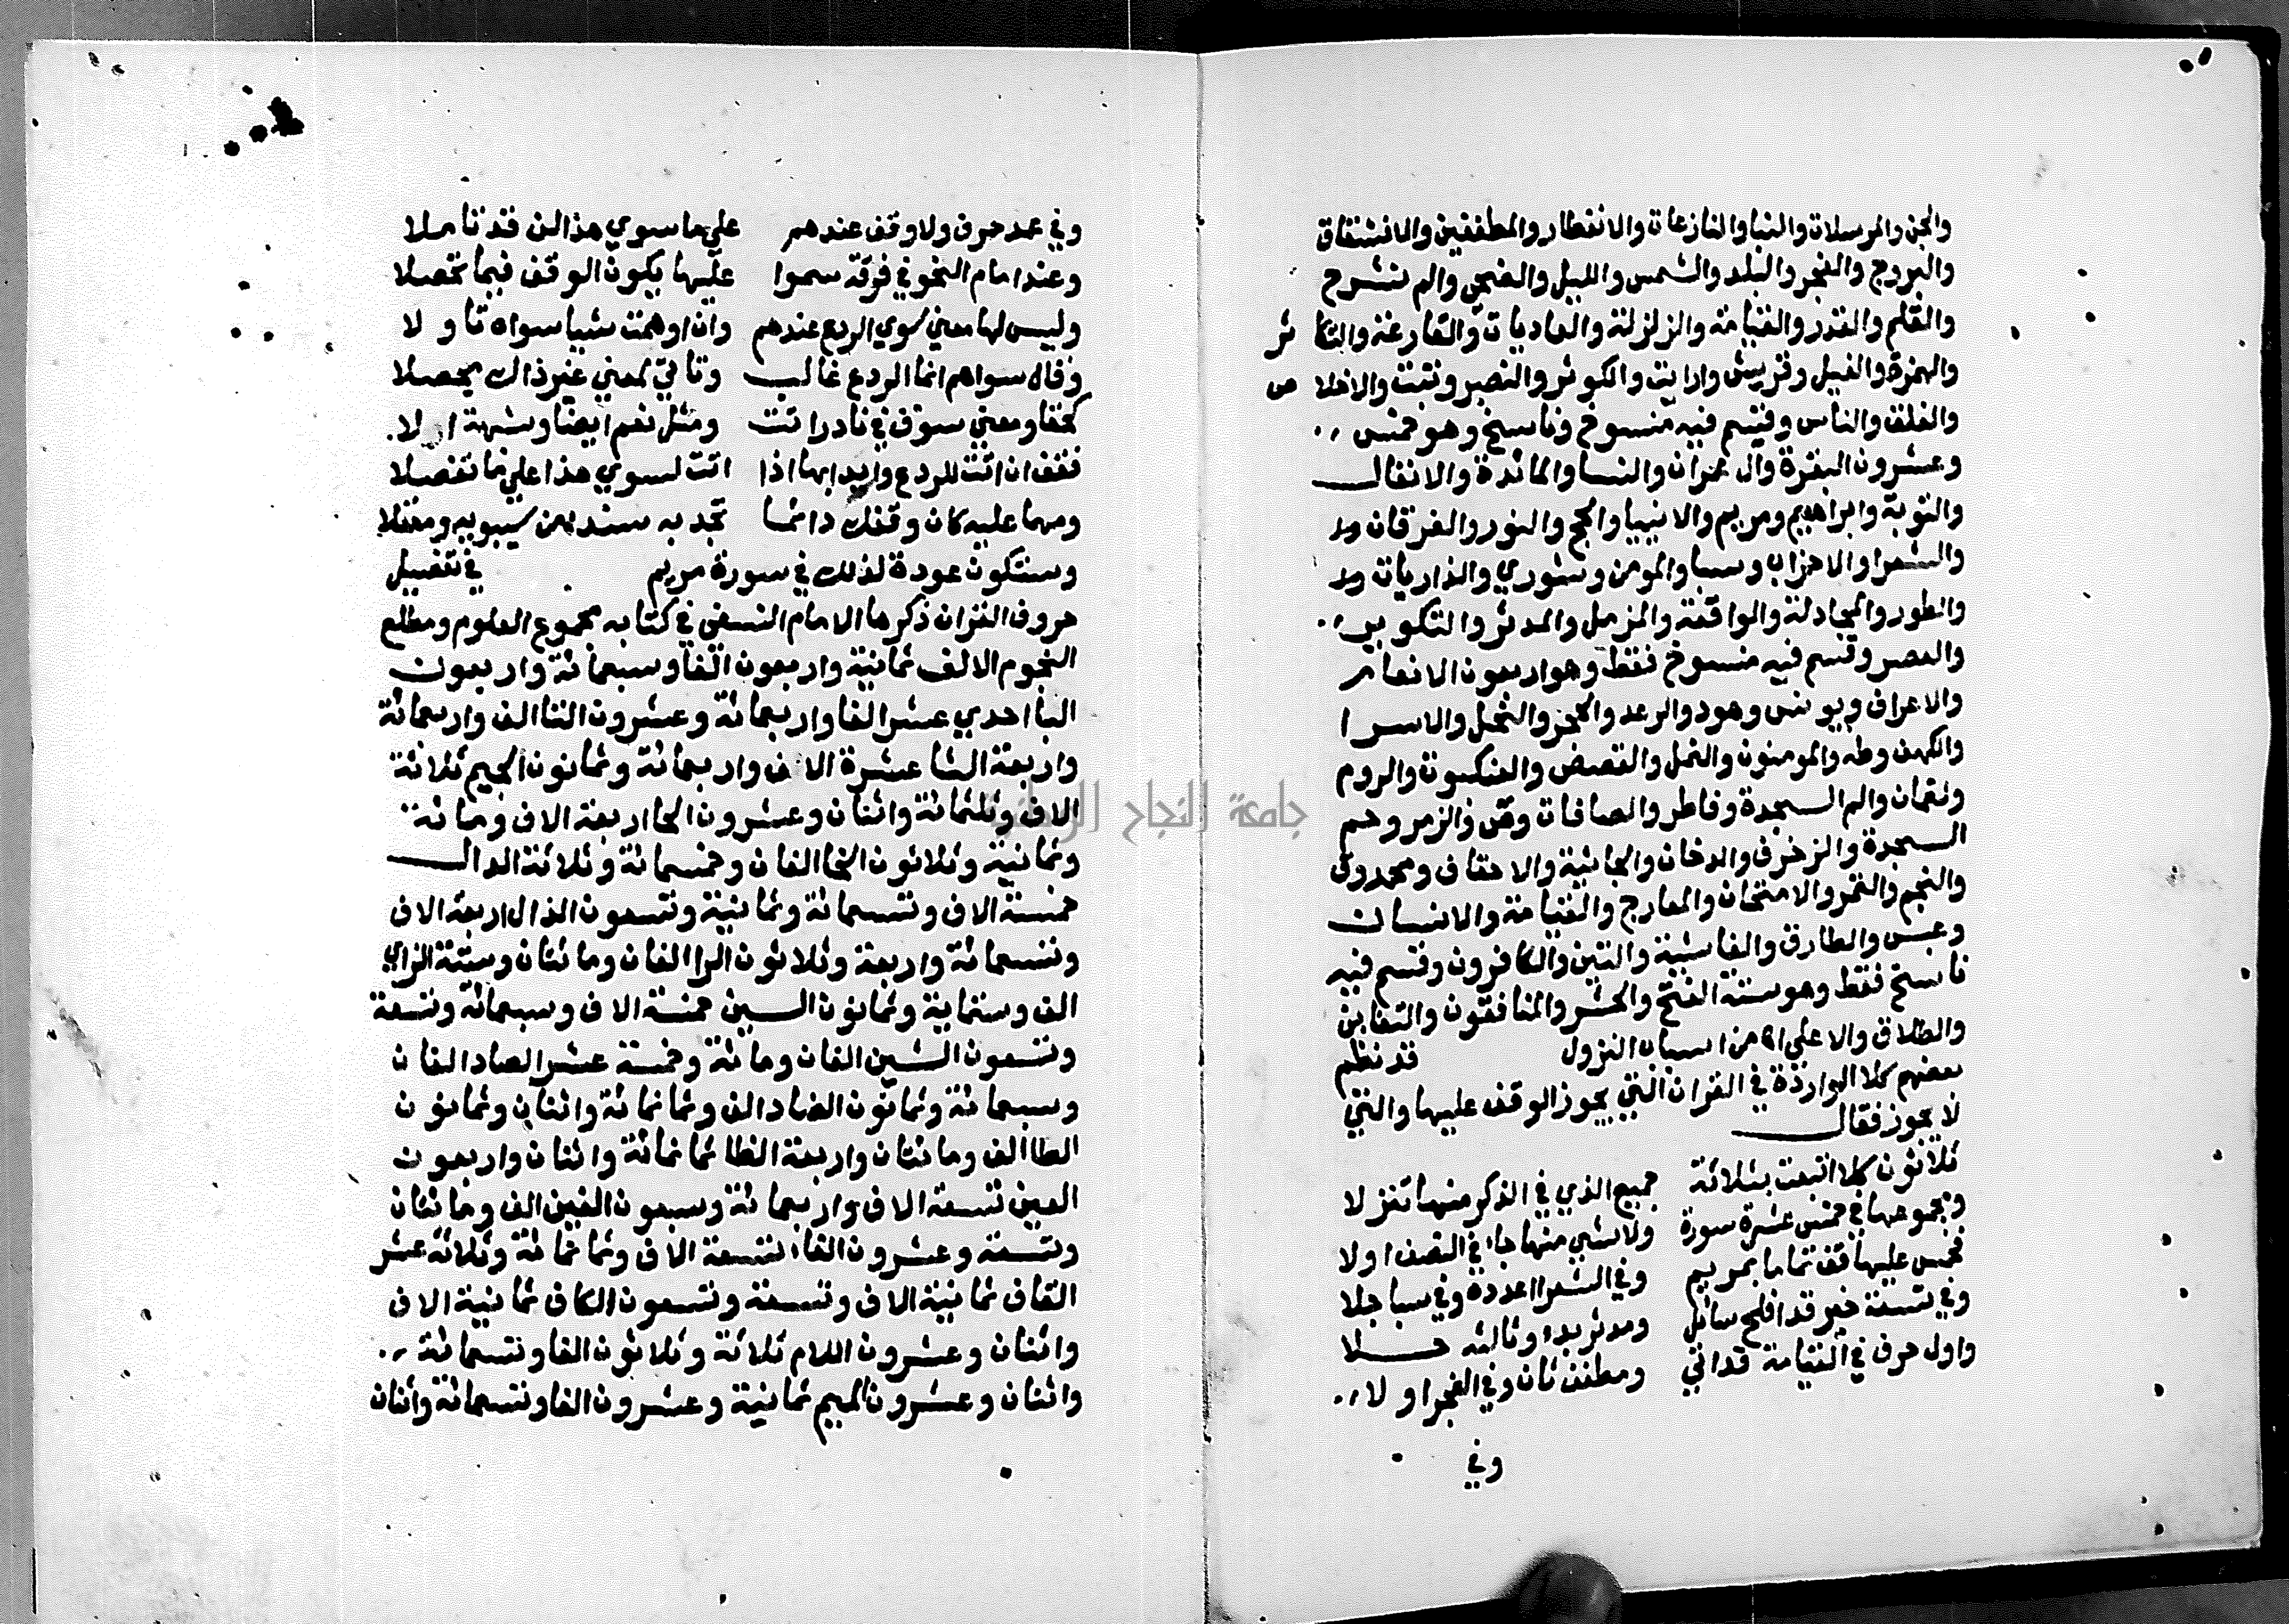 والجن والمرسلات والنبا والنازعات والانفطار والمطففين والانشقاق
والبروج والفجر والبلد والشمس والليل والضحي والم نشرح
والقلم والقدر والقيامة والزلزلة والعاديات والقارعة والتكاثر
والهمزة والفيل وقريش وارايت والكوثر والنصر وتبت والاخلاص
والفلق والناس وقسم فيه منسوخ وناسخ وهو خمس
وعشرون البقرة وال عمران والنسا والمائدة والانفال
والتوبة وابراهيم ومريم والانبيا والحج والنور والفرقان
والشعرا والاحزاب وسبا والمومن وشوري والذاريات
والطور والمجادلة والواقعة والمزمل والمدثر والتكوير
والعصر وقسم فيه منسوخ فقط وهو اربعون الانعام
والاعراف ويونس وهود والرعد والحجر والنحل والاسرا
والكهف وطه والمومنون والنمل والقصص والعنكبوت والروم
ولقمان والم السجدة وفاطر والصافات وص والزمر وحم
السجدة والزخرف والدخان والجاثية والاحقاف ومحمد وق
والنجم والقمر والامتحان والمعارج والقيامة والانسان
وعبس والطارق والغاشية والتين والكافرون وقسم فيه
ناسخ فقط وهو ستة الفتح والحشر والمنافقون والتغابن
والطلاق والاعلي اه من اسباب النزول قد نظم
بعضهم كلا الواردة في القران التي يجوز الوقف عليها والتي
لا يجوز فقال
ثلاثون كلا اتبعت بثلاثة جميع الذي في الذكر منها تنزلا
ومجموعها في خمس عشرة سورة ولا شي منها جاء في النصف اولا
فخمس عليها قف تماما بمريم وفي الشعرا اعدده وفي سبا جلا
وفي تسعة خير قد افلح سائل ومدثر بدء وثالثه حلا
واول حرف في القيامة قد اتي ومطفف ثان وفي الفجر اولا
وفي
وفي عمد حرف ولا وقف عندهم علي ما سوي هذا لمن قد تاملا
وعند امام النحو في فرقة سموا عليها يكون الوقف فيما تحصلا
وليس لها معني سوي الردع عندهم وان اوهمت شيا سواه تاولا
وقال سواهم انما الردع غالب وتاتي لمعني غير ذاك محصلا
كحقا ومعني سوف في نادر اتت ومثل نعم ايضا ومشبهة الا
فقف ان اتت للردع وابدا بها اذا اتت لسوي هذا علي ما تفصلا
ومهما عليه كان وقفك دائما تجد به سندا من سيبويه ومعقلا
وستكون عودة لذلك في سورة مريم في تفصيل
حروف القران ذكرها الامام النسفي في كتابه مجموع العلوم ومطلع
النجوم الالف ثمانية واربعون الفا وسبعمائة واربعون
البا احدي عشر الفا واربعمائة وعشرون التا الف واربعمائة
واربعة الثا عشرة الاف واربعمائة وثمانون الجيم ثلاثة
الاف وثلثمائة واثنان وعشرون الحا اربعة الاف ومائة
وثمانية وثلاثون الخا الفان وخمسمائة وثلاثة الدال
خمسة الاف وتسعمائة وثمانية وتسعون الذال اربعة الاف
وتسعمائة واربعة وثلاثون الرا الفان ومائتان وستة الزاي
الف وستماية وثمانون السين خمسة الاف وسبعمائة وتسعة
وتسعون الشين الفان ومائة وخمسة عشر الصاد الفان
وسبعمائة وثمانون الضاد الف وثمانمائة واثنان وثمانون
الطا الف ومائتان واربعة الظا ثمانمائة واثنان واربعون
العين تسعة الاف واربعمائة وسبعون الغين الف ومائتان
وتسعة وعشرون الفاء تسعة الاف وثمانمائة وثلاثة عشر
القاف ثمانية الاف وتسعة وتسعون الكاف ثمانية الاف
واثنان وعشرون اللام ثلاثة وثلاثون الفا وتسعمائة
واثنان وعشرون الميم ثمانية وعشرون الفا وتسعمائة واثنان
جامعة النجاح الوطنية